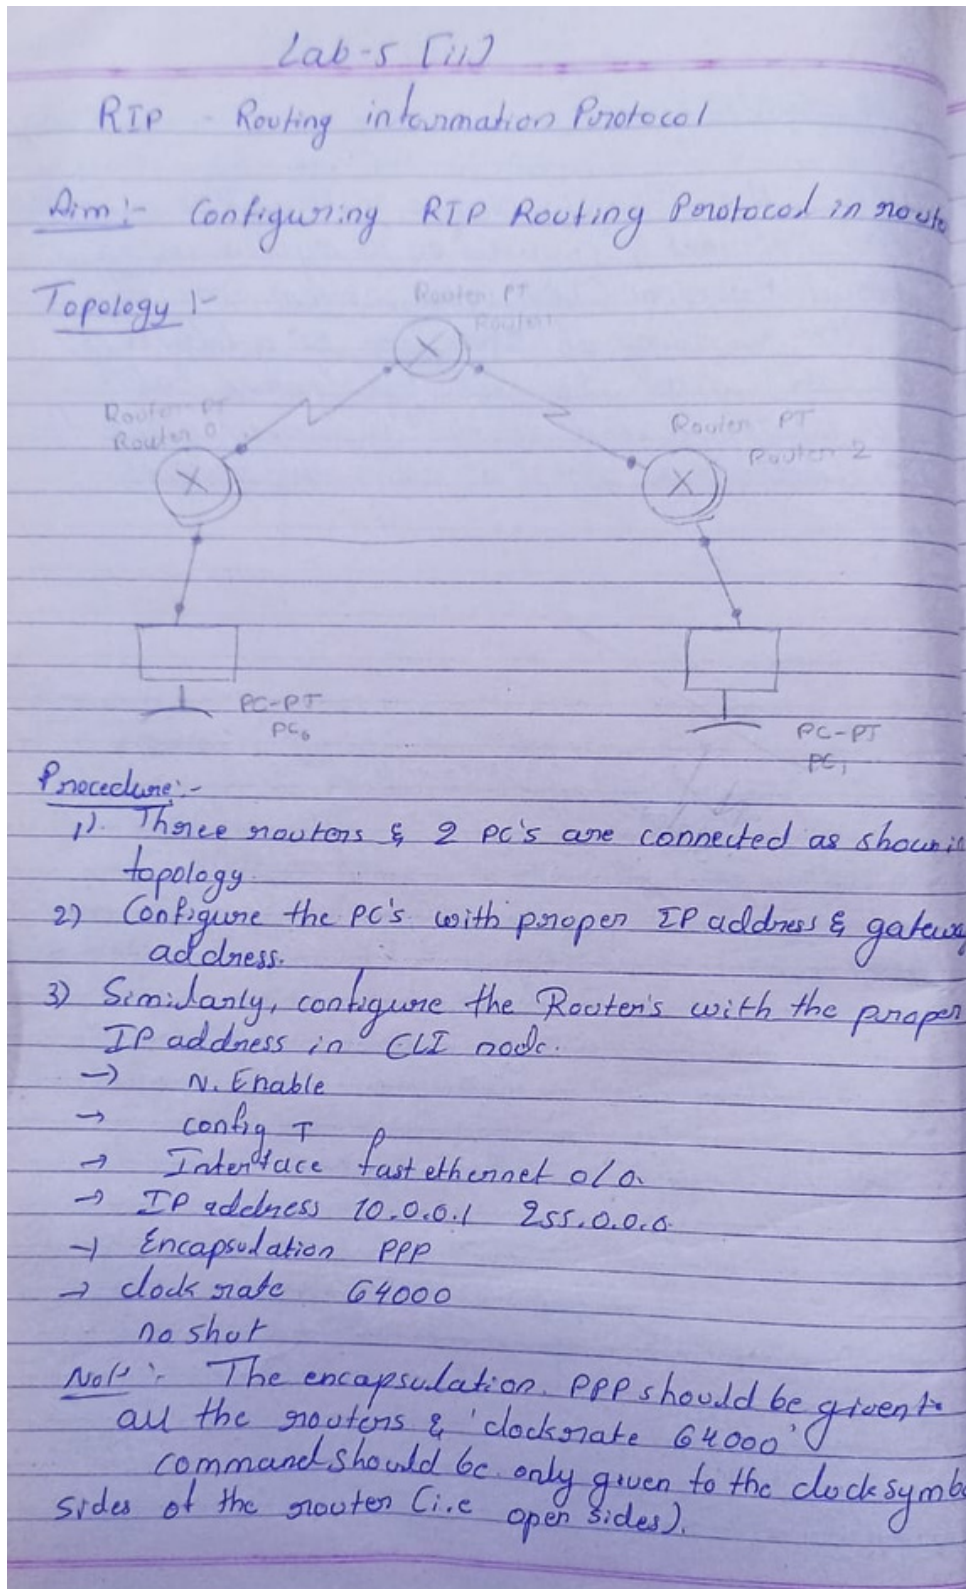 Lab-5 [ii]
RIP - Routing information Protocol
Aim:- Configuring RIP Routing Protocol in route
Topology :-
Router PT
Router1
Router-PT
Router 0
Router PT
Router 2
PC-PT
PC0
PC-PT
PC1
Procedure:-
1). Three routers & 2 PC's are connected as shown in
topology.
2) Configure the PC's with proper IP address & gateway
address.
3) Similarly, configure the Router's with the proper
IP address in CLI node.
→ N. Enable
→ config T
→ Interface fast ethernet 0/0.
→ IP address 10.0.0.1 255.0.0.0.
→ Encapsulation PPP
→ clock rate 64000
no shut
Note :- The encapsulation PPP should be given to
all the routers & 'clockrate 64000'
command should be only given to the clock symb
sides of the router (i.e open sides).